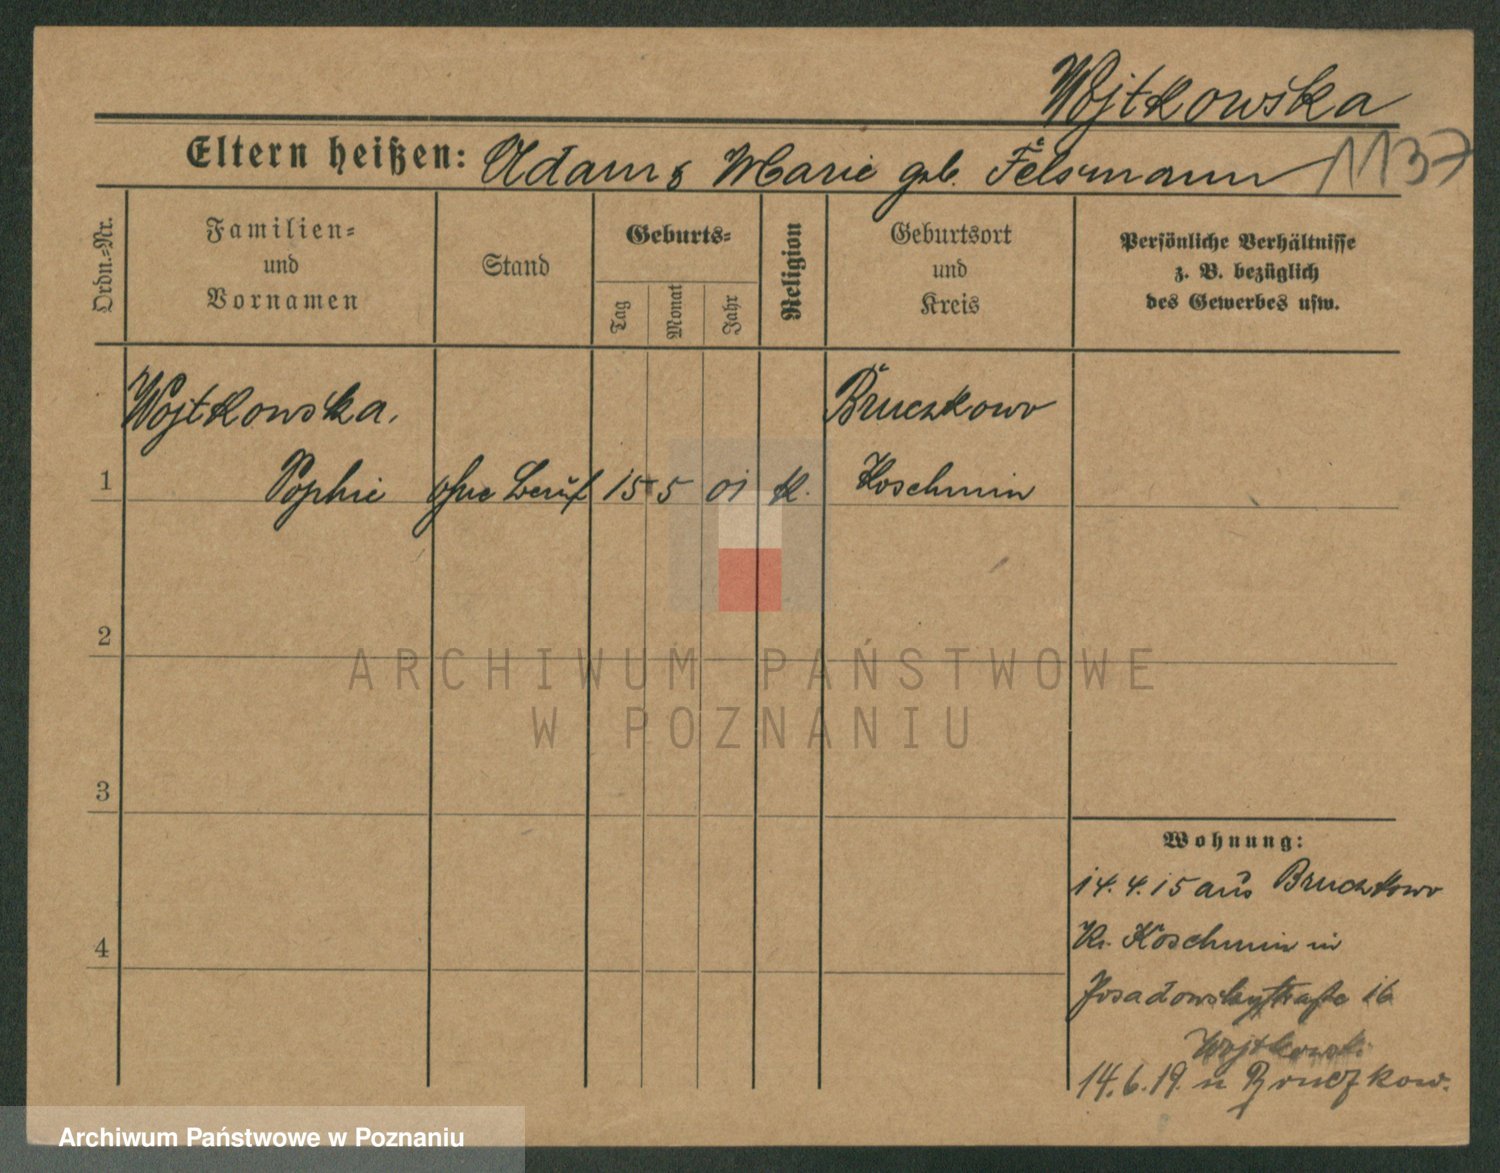 Wojtkowska
Eltern heißen: Adam & Marie geb. Felsmann 1137
Ordn.-Nr.
Familien-
und
Vornamen
Stand
Geburts-
Tag
Monat
Jahr
Religion
Geburtsort
und
Kreis
Persönliche Verhältnisse
z. B. bezüglich
des Gewerbes usw.
Wojtkowska. Bruczkowo
1 Sophie ohne Beruf 15 5 01 k. Koschmin
2
ARCHIWUM PAŃSTWOWE
W POZNANIU
3
Wohnung:
14.4.15 aus Bruczkowo
Kr. Koschmin in
Posadowskystraße 16
Wojtkowski
4
14.6.19. n Bruczkow.
Archiwum Państwowe w Poznaniu